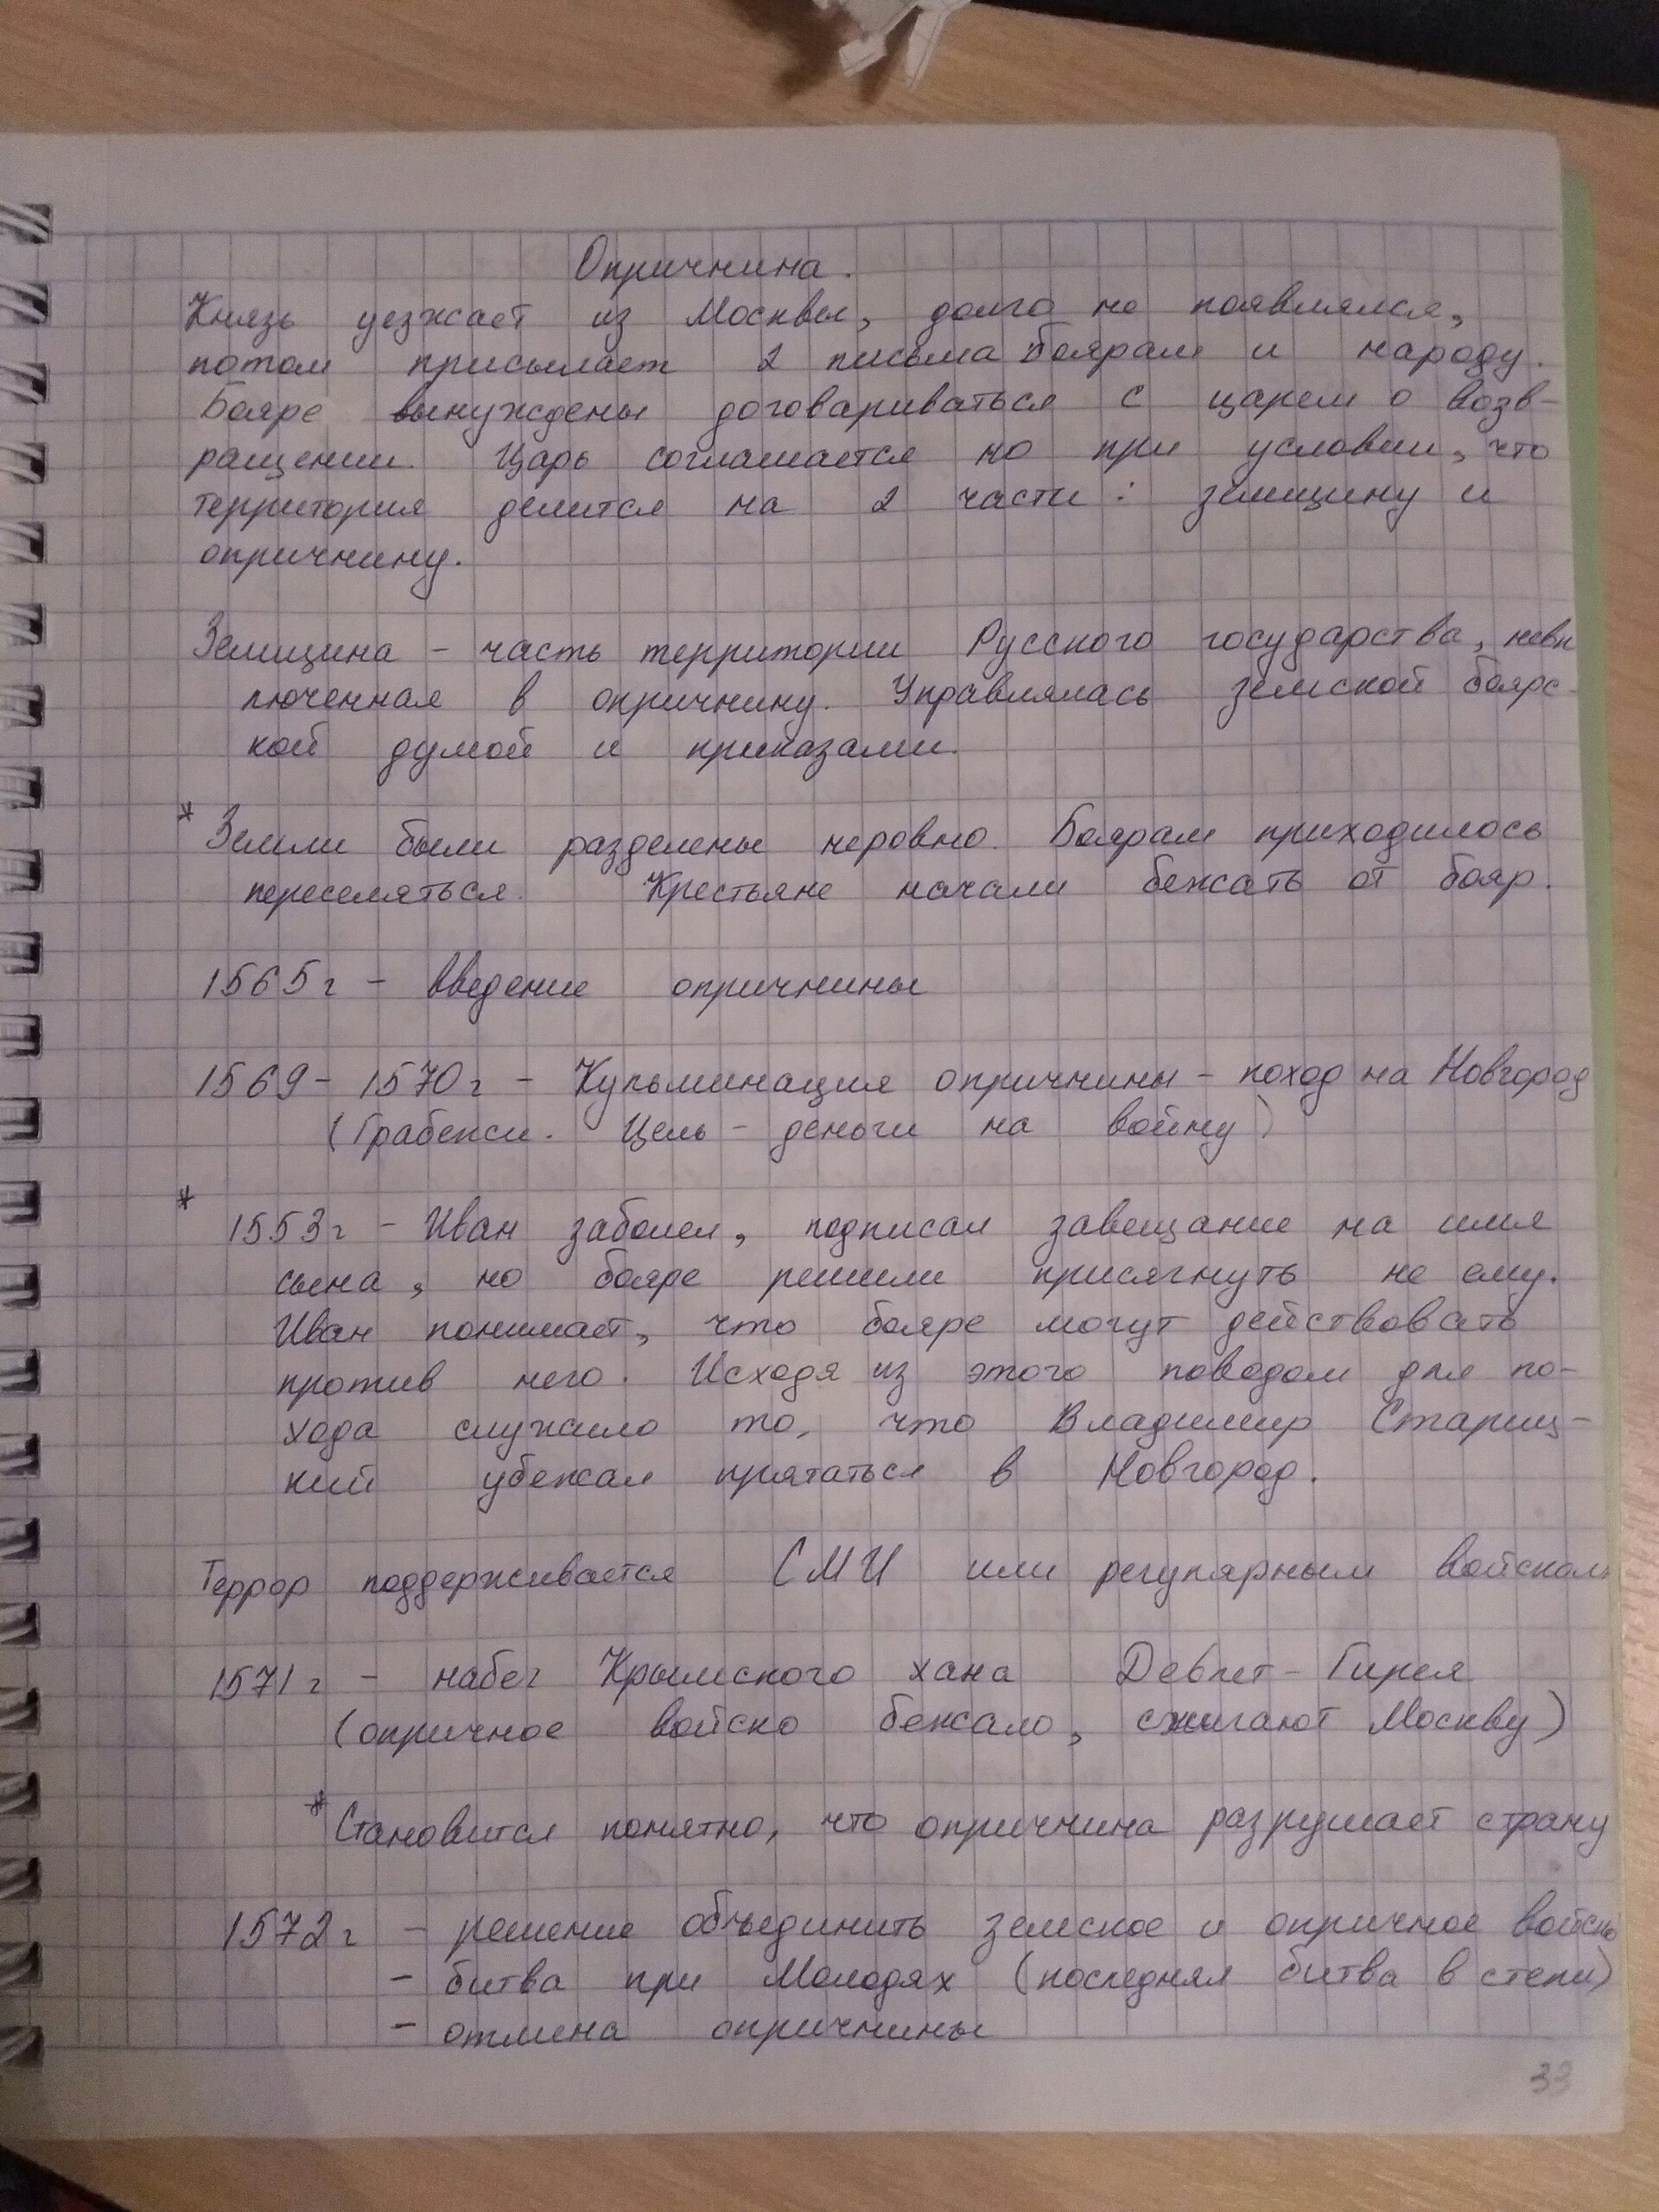 Опричнина.
Князь уезжает из Москвы, долго не появлялся,
потом присылает 2 письма боярам и народу.
Бояре вынуждены договариваться с царем о возв-
ращении. Царь соглашается но при условии, что
территория делится на 2 части: земщину и
опричнину.
Земщина - часть территории Русского государства, невк
люченная в опричнину. Управлялась земской боярс-
кой думой и приказами.
* Земли были разделены неровно. Боярам приходилось
переселяться. Крестьяне начали бежать от бояр.
1565г - введение опричнины
1569-1570г - Кульминация опричнины - поход на Новгород
(Грабежи. Цель - деньги на войну)
* 1553г - Иван заболел, подписал завещание на имя
сына, но бояре решили присягнуть не ему.
Иван понимает, что бояре могут действовать
против него. Исходя из этого поводом для по-
хода служило то, что Владимир Стариц-
кий убежал прятаться в Новгород.
Террор поддерживается СМИ или регулярным войском
1571г - набег Крымского хана Девлет-Гирея
(опричное войско бежало, сжигают Москву)
* Становится понятно, что опричнина разрушает страну
1572г - решение объединить земское и опричное войско
- битва при Молодях (последняя битва в степи)
- отмена опричнины
33